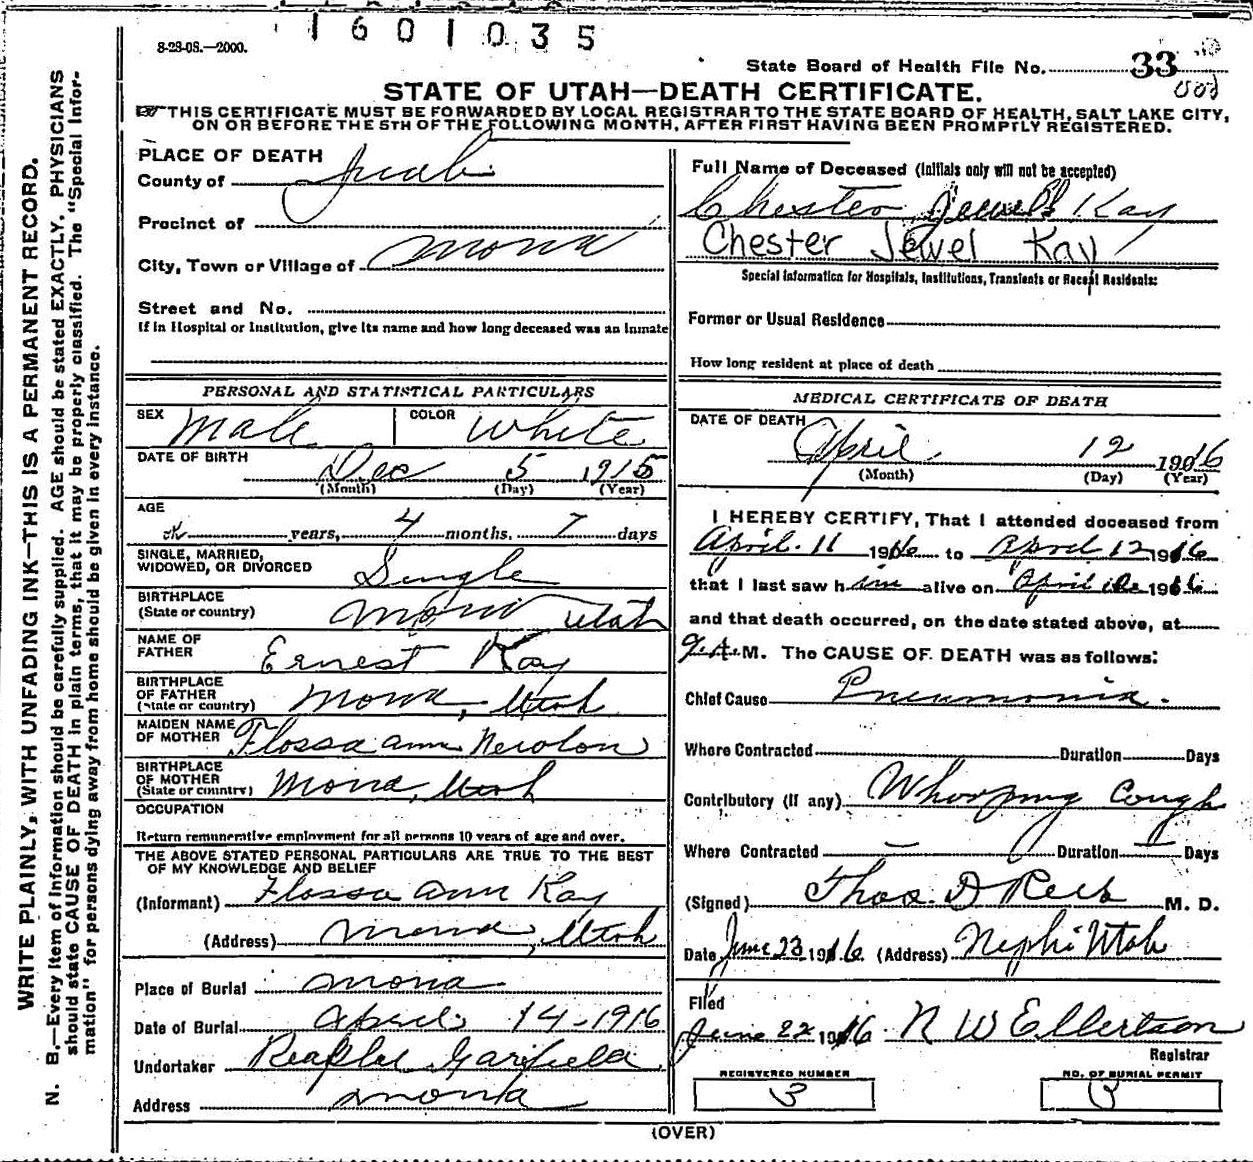 1601035
8-28-08.—2000.
State Board of Health File No. 33
STATE OF UTAH—DEATH CERTIFICATE.
THIS CERTIFICATE MUST BE FORWARDED BY LOCAL REGISTRAR TO THE STATE BOARD OF HEALTH, SALT LAKE CITY,
ON OR BEFORE THE 5TH OF THE FOLLOWING MONTH, AFTER FIRST HAVING BEEN PROMPTLY REGISTERED.
WRITE PLAINLY, WITH UNFADING INK—THIS IS A PERMANENT RECORD.
N. B.—Every item of information should be carefully supplied. AGE should be stated EXACTLY. PHYSICIANS
should state CAUSE OF DEATH in plain terms, that it may be properly classified. The "Special Infor-
mation" for persons dying away from home should be given in every instance.
PLACE OF DEATH
County of Juab
Precinct of
City, Town or Village of Mona
Street and No.
If in Hospital or Institution, give its name and how long deceased was an inmate
PERSONAL AND STATISTICAL PARTICULARS
SEX Male COLOR White
DATE OF BIRTH
Dec 5 1915
(Month) (Day) (Year)
AGE
years, 4 months, 7 days
SINGLE, MARRIED,
WIDOWED, OR DIVORCED Single
BIRTHPLACE
(State or country) Mona Utah
NAME OF
FATHER Ernest Kay
BIRTHPLACE
OF FATHER
(State or country) Mona, Utah
MAIDEN NAME
OF MOTHER Flossa Ann
BIRTHPLACE
OF MOTHER
(State or country) Mona, Utah
OCCUPATION
Return remunerative employment for all persons 10 years of age and over.
THE ABOVE STATED PERSONAL PARTICULARS ARE TRUE TO THE BEST
OF MY KNOWLEDGE AND BELIEF
(Informant) Flossa Ann Kay
(Address) Mona, Utah
Place of Burial Mona
Date of Burial April 14-1916
Undertaker Garfield
Address Mona
Full Name of Deceased (Initials only will not be accepted)
Chester Jewell Kay
Chester Jewel Kay
Special Information for Hospitals, Institutions, Transients or Recent Residents:
Former or Usual Residence
How long resident at place of death
MEDICAL CERTIFICATE OF DEATH
DATE OF DEATH
April 12 1916
(Month) (Day) (Year)
I HEREBY CERTIFY, That I attended deceased from
April 11 1916 to April 12 1916
that I last saw him alive on April 1916
and that death occurred, on the date stated above, at
9.A.M. The CAUSE OF DEATH was as follows:
Chief Cause Pneumonia.
Where Contracted Duration Days
Contributory (If any) Whooping Cough
Where Contracted — Duration — Days
(Signed) Thos. D Rees M. D.
Date June 23 1916. (Address) Nephi Utah
Filed
June 22 1916 N W Ellertson
Registrar
REGISTERED NUMBER
3
NO. OF BURIAL PERMIT
3
(OVER)